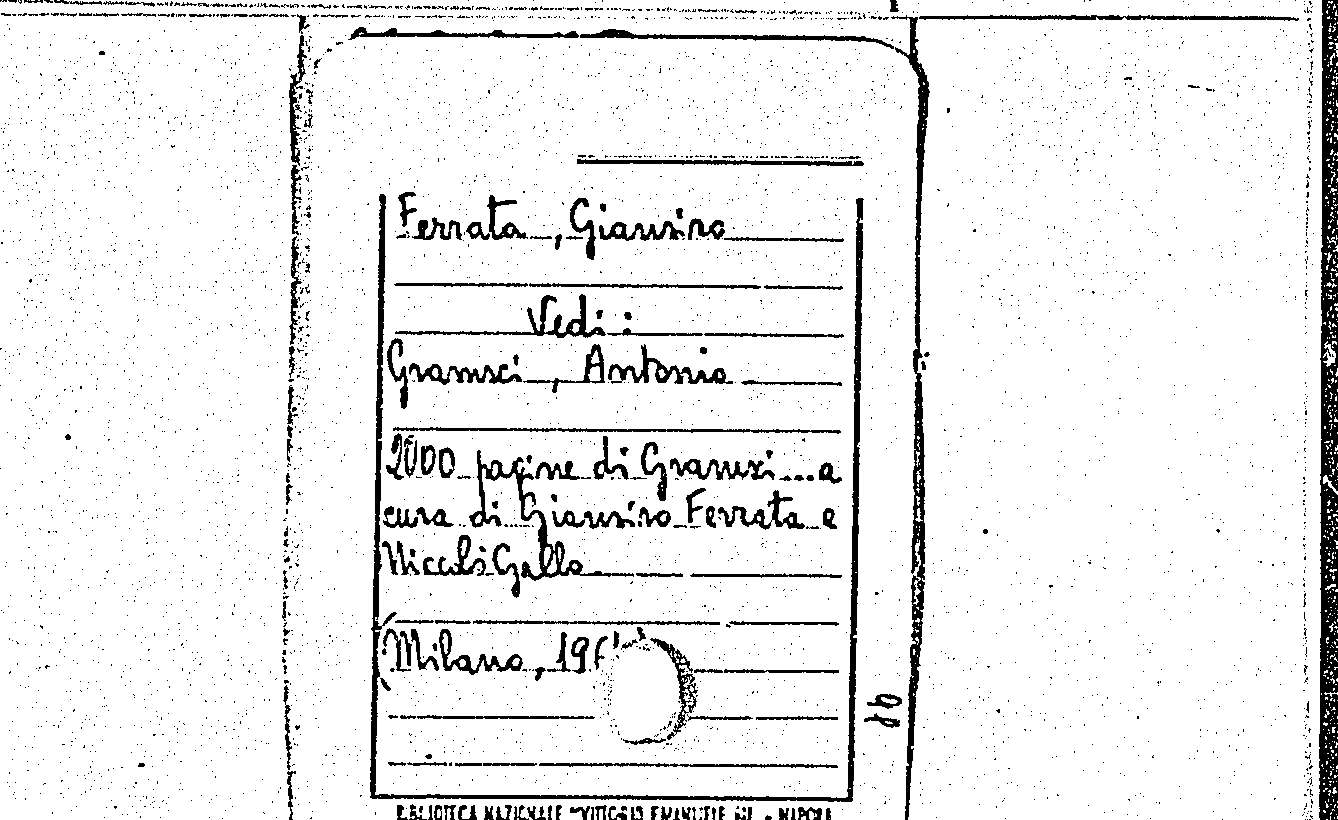 Ferrata, Giansiro
Vedi:
Gramsci, Antonio
2000 pagine di Gramsci...a
cura di Giansiro Ferrata e
Niccolò Gallo.
(Milano, 196
BIBLIOTECA NAZIONALE "VITTORIO EMANUELE III" - NAPOLI